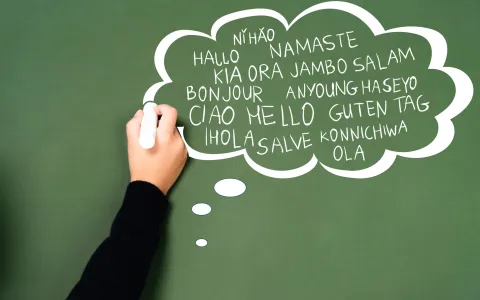 NI HÄO
HALLO NAMASTE
KIA ORA JAMBO SALAM
BONJOUR ANYOUNG HASEYO
CIAO MELLO GUTEN TAG
¡HOLA SALVE KONNICHIWA
OLA